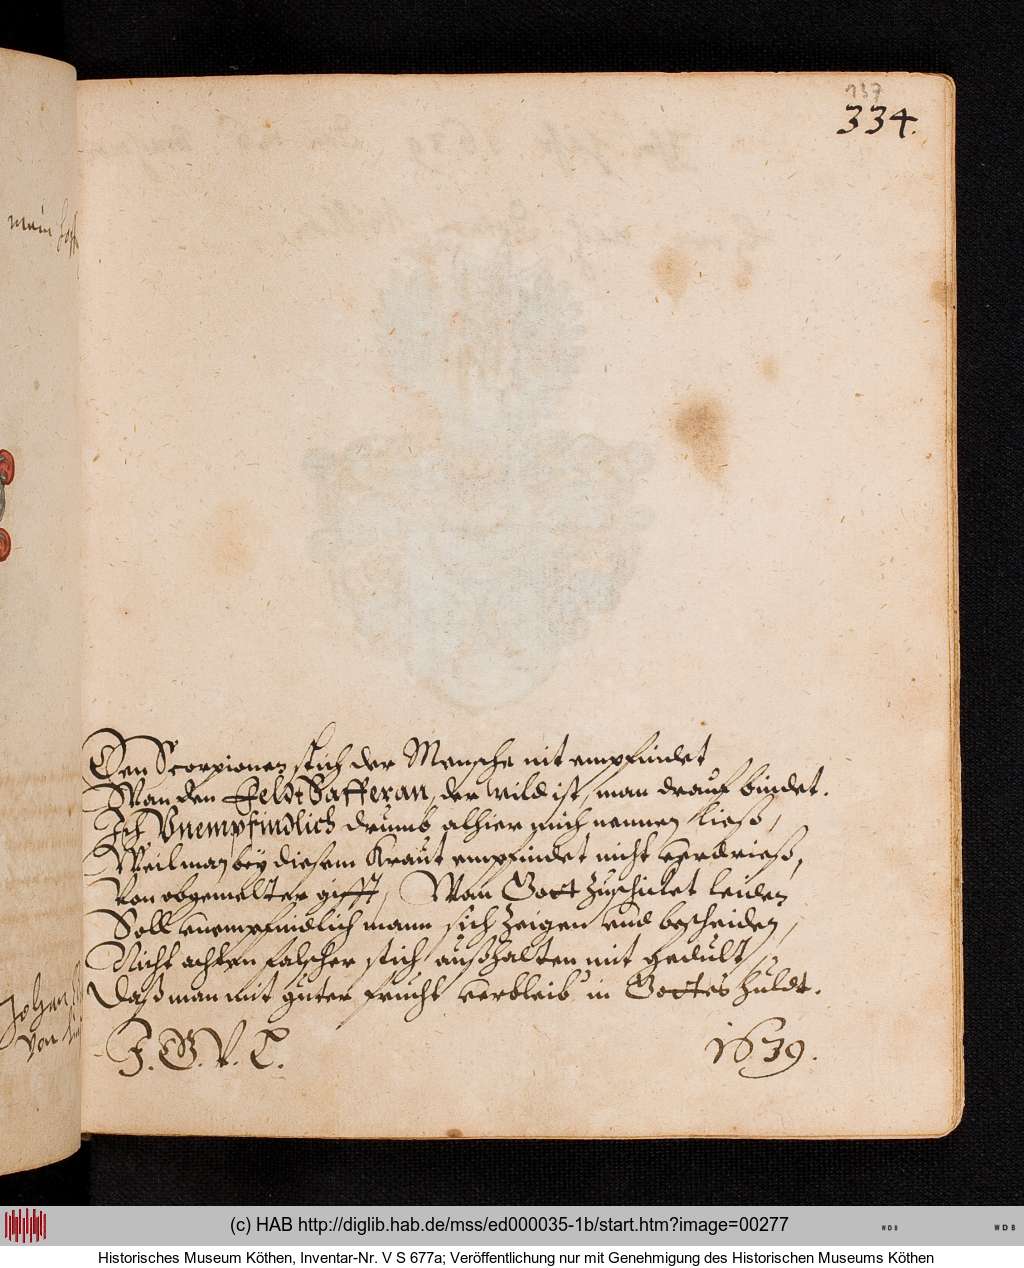 137
334.
mein
Den Scorpionen stich der Mensche nit empfindet
Wan den Feldt Safferan, der wild ist, man drauf bindet.
Ich Vnempfindlich drumb alhier mich nennen ließ,
Weil man bey diesem Kraut empfindet nicht verdrieß,
Von obgemelter gifft, Wan Gott zuschicket leiden
Soll vnempfindlich mann sich zeigen vnd bescheiden,
Nicht achten falscher stich außhalten mit gedult
Daß man mit guter frucht verbleib' in Gottes huldt.
Johan
von
J. G. V. C.
1639.
(c) HAB http://diglib.hab.de/mss/ed000035-1b/start.htm?image=00277
WDB
WDB
Historisches Museum Köthen, Inventar-Nr. V S 677a; Veröffentlichung nur mit Genehmigung des Historischen Museums Köthen